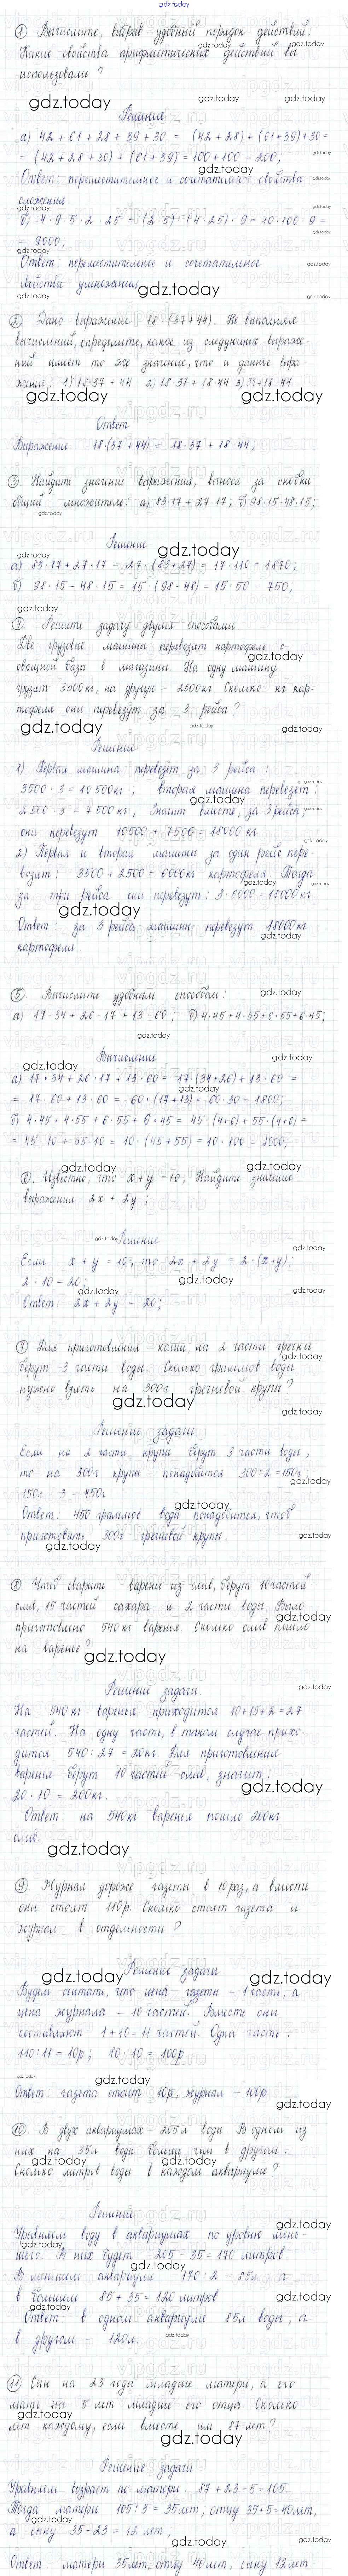 gdz.today
① Вычислите, выбрав удобный порядок действий.
Какие свойства арифметических действий вы
использовали?
Решение
а) 42 + 61 + 28 + 39 + 30 = (42 + 28) + (61+39)+30 =
= (42 + 28 + 30) + (61 + 39) = 100 + 100 = 200;
Ответ: переместительное и сочетательное свойства
сложения
б) 4 · 9 · 5 · 2 · 25 = (2 · 5) · (4 · 25) · 9 = 10 · 100 · 9 =
= 9000;
Ответ: переместительное и сочетательное
свойства умножения
② Дано выражение 18 · (37 + 44). Не выполняя
вычислений, определите, какое из следующих выраже-
ний имеет то же значение, что и данное выра-
жение: 1) 18·37 + 44 2) 18·37 + 18·44 3) 37+18·44
Ответ
Выражение 18·(37 + 44) = 18·37 + 18·44;
③. Найдите значение выражения, вынося за скобки
общий множитель: а) 83·17 + 27·17; б) 98·15 - 48·15;
Решение
а) 83·17 + 27·17 = 27 · (83+27) = 17·110 = 1870;
б) 98·15 - 48·15 = 15 (98 - 48) = 15·50 = 750;
④ Решите задачу двумя способами
Две грузовые машины перевозят картофель с
овощной базы в магазины. На одну машину
грузят 3500 кг, на другую - 2500 кг Сколько кг кар-
тофеля они перевезут за 3 рейса?
Решение
1) Первая машина перевезёт за 3 рейса:
3500 · 3 = 10500 кг; вторая машина перевезёт:
2500 · 3 = 7500 кг; Значит вместе, за 3 рейса,
они перевезут 10500 + 7500 = 18000 кг
2) Первая и вторая машины за один рейс пере-
возят: 3500 + 2500 = 6000 кг картофеля Тогда
за три рейса они перевезут: 3·6000 = 18000 кг
Ответ: за 3 рейса машины перевезут 18000 кг
картофеля
⑤. Вычислите удобным способом:
а) 17·34 + 26·17 + 13·60; б) 4·45+4·55+6·55+6·45;
Вычисление
а) 17·34 + 26·17 + 13·60 = 17·(34+26) + 13·60 =
= 17·60 + 13·60 = 60·(17+13) = 60·30 = 1800;
б) 4·45 + 4·55 + 6·55 + 6·45 = 45·(4+6) + 55·(4+6) =
= 45·10 + 55·10 = 10·(45+55) = 10·100 = 1000;
⑥. Известно, что x + y = 10; Найдите значение
выражения 2x + 2y;
Решение
Если x + y = 10, то 2x + 2y = 2·(x+y);
2 · 10 = 20;
Ответ: 2x + 2y = 20;
⑦ Для приготовления каши, на 2 части гречки
берут 3 части воды. Сколько граммов воды
нужно взять на 300г гречневой крупы?
Решение задачи
Если на 2 части крупы берут 3 части воды,
то на 300г крупы понадобится 300 : 2 = 150г;
150г · 3 = 450г
Ответ: 450 граммов воды понадобится, чтоб
приготовить 300г гречневой крупы.
⑧ Чтоб сварить варенье из слив, берут 10 частей
слив, 15 частей сахара и 2 части воды Было
приготовлено 540 кг варенья. Сколько слив пошло
на варенье?
Решение задачи.
На 540 кг варенья приходится 10+15+2=27
частей. На одну часть, в таком случае прихо-
дится 540 : 27 = 20 кг. Для приготовления
варенья берут 10 частей слив, значит:
20 · 10 = 200 кг.
Ответ: на 540 кг варенья пошло 200 кг
слив.
⑨. Журнал дороже газеты в 10 раз, а вместе
они стоят 110р. Сколько стоят газета и
журнал в отдельности?
Решение задачи
Будем считать, что цена газеты - 1 часть, а
цена журнала - 10 частей. Вместе они
составляют 1 + 10 = 11 частей. Одна часть:
110 : 11 = 10р; 10 · 10 = 100р
Ответ: газета стоит 10р, журнал - 100р
⑩. В двух аквариумах 205 л воды В одном из
них на 35л воды больше чем в другом.
Сколько литров воды в каждом аквариуме?
Решение
Уравняем воду в аквариумах по уровню мень-
шего. В них будет 205 - 35 = 170 литров
В меньшем аквариуме 170 : 2 = 85л, а
в большем 85 + 35 = 120 литров
Ответ: в одном аквариуме 85л воды, а
в другом - 120л.
⑪ Сын на 23 года младше матери, а его
мать на 5 лет младше его отца Сколько
лет каждому, если вместе им 87 лет?
Решение задачи
Уравняем возраст по матери: 87 + 23 - 5 = 105
Тогда матери 105 : 3 = 35лет, отцу 35+5=40лет,
а сыну 35-23 = 12 лет,
Ответ: матери 35лет, отцу 40лет, сыну 12лет